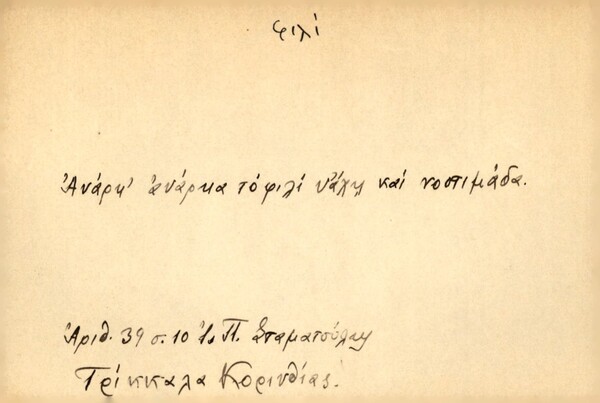 φιλί
Ἀνάρῃ' ἀνάρηα τό φιλί νἄχῃ καί νοστιμάδα.
Ἀριθ. 39 σ. 10 Π. Σταματούλη
Τρίκκαλα Κορινθίας.